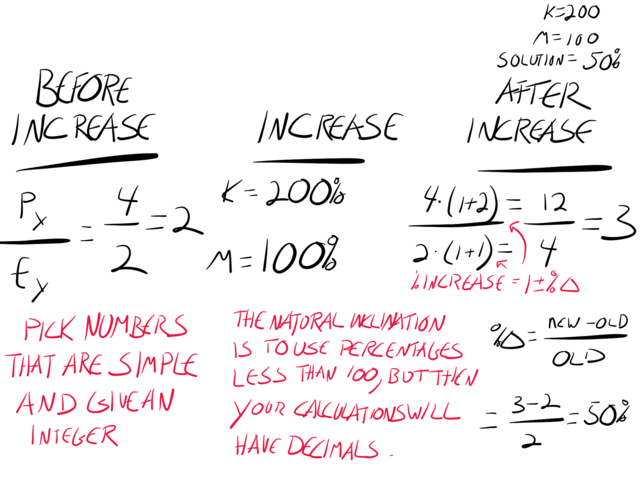 K=200
M=100
SOLUTION= 50%
BEFORE
INCREASE
P_x / E_y = 4/2 = 2
PICK NUMBERS
THAT ARE SIMPLE
AND GIVE AN
INTEGER
INCREASE
K=200%
M=100%
THE NATURAL INCLINATION
IS TO USE PERCENTAGES
LESS THAN 100, BUT THEN
YOUR CALCULATIONS WILL
HAVE DECIMALS.
AFTER
INCREASE
4·(1+2) = 12
2·(1+1) = 4
=3
% INCREASE = 1±%Δ
%Δ = NEW-OLD / OLD
= 3-2 / 2 = 50%